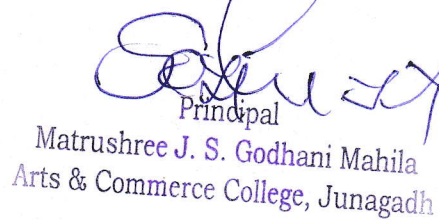 Principal
Matrushree J. S. Godhani Mahila
Arts & Commerce College, Junagadh